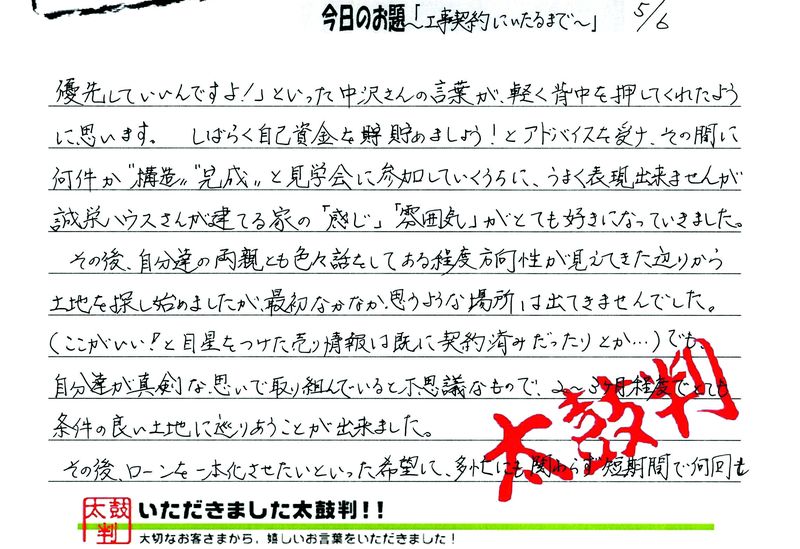 今日のお題～「工事契約にいたるまで～」 5/6
優先していいんですよ!」といった中沢さんの言葉が、軽く背中を押してくれたよう
に思います。 しばらく自己資金を貯めましょう!とアドバイスを受け、その間に
何件か“構造”“完成”と見学会に参加していくうちに、うまく表現出来ませんが
誠栄ハウスさんが建てる家の「感じ」「雰囲気」がとても好きになっていきました。
その後、自分達の両親とも色々話をしてある程度方向性が見えてきた辺りから
土地を探し始めましたが、最初なかなか思うような場所は出てきませんでした。
(ここがいい!と目星をつけた売り情報は既に契約済みだったりとか…)でも、
自分達が真剣な思いで取り組んでいると不思議なもので、2～3ヶ月程度でとても
条件の良い土地に巡りあうことが出来ました。
その後、ローンを一本化させたいといった希望に、多忙にも関わらず短期間で何回も
太鼓判
太鼓判
いただきました太鼓判!!
大切なお客さまから、嬉しいお言葉をいただきました!